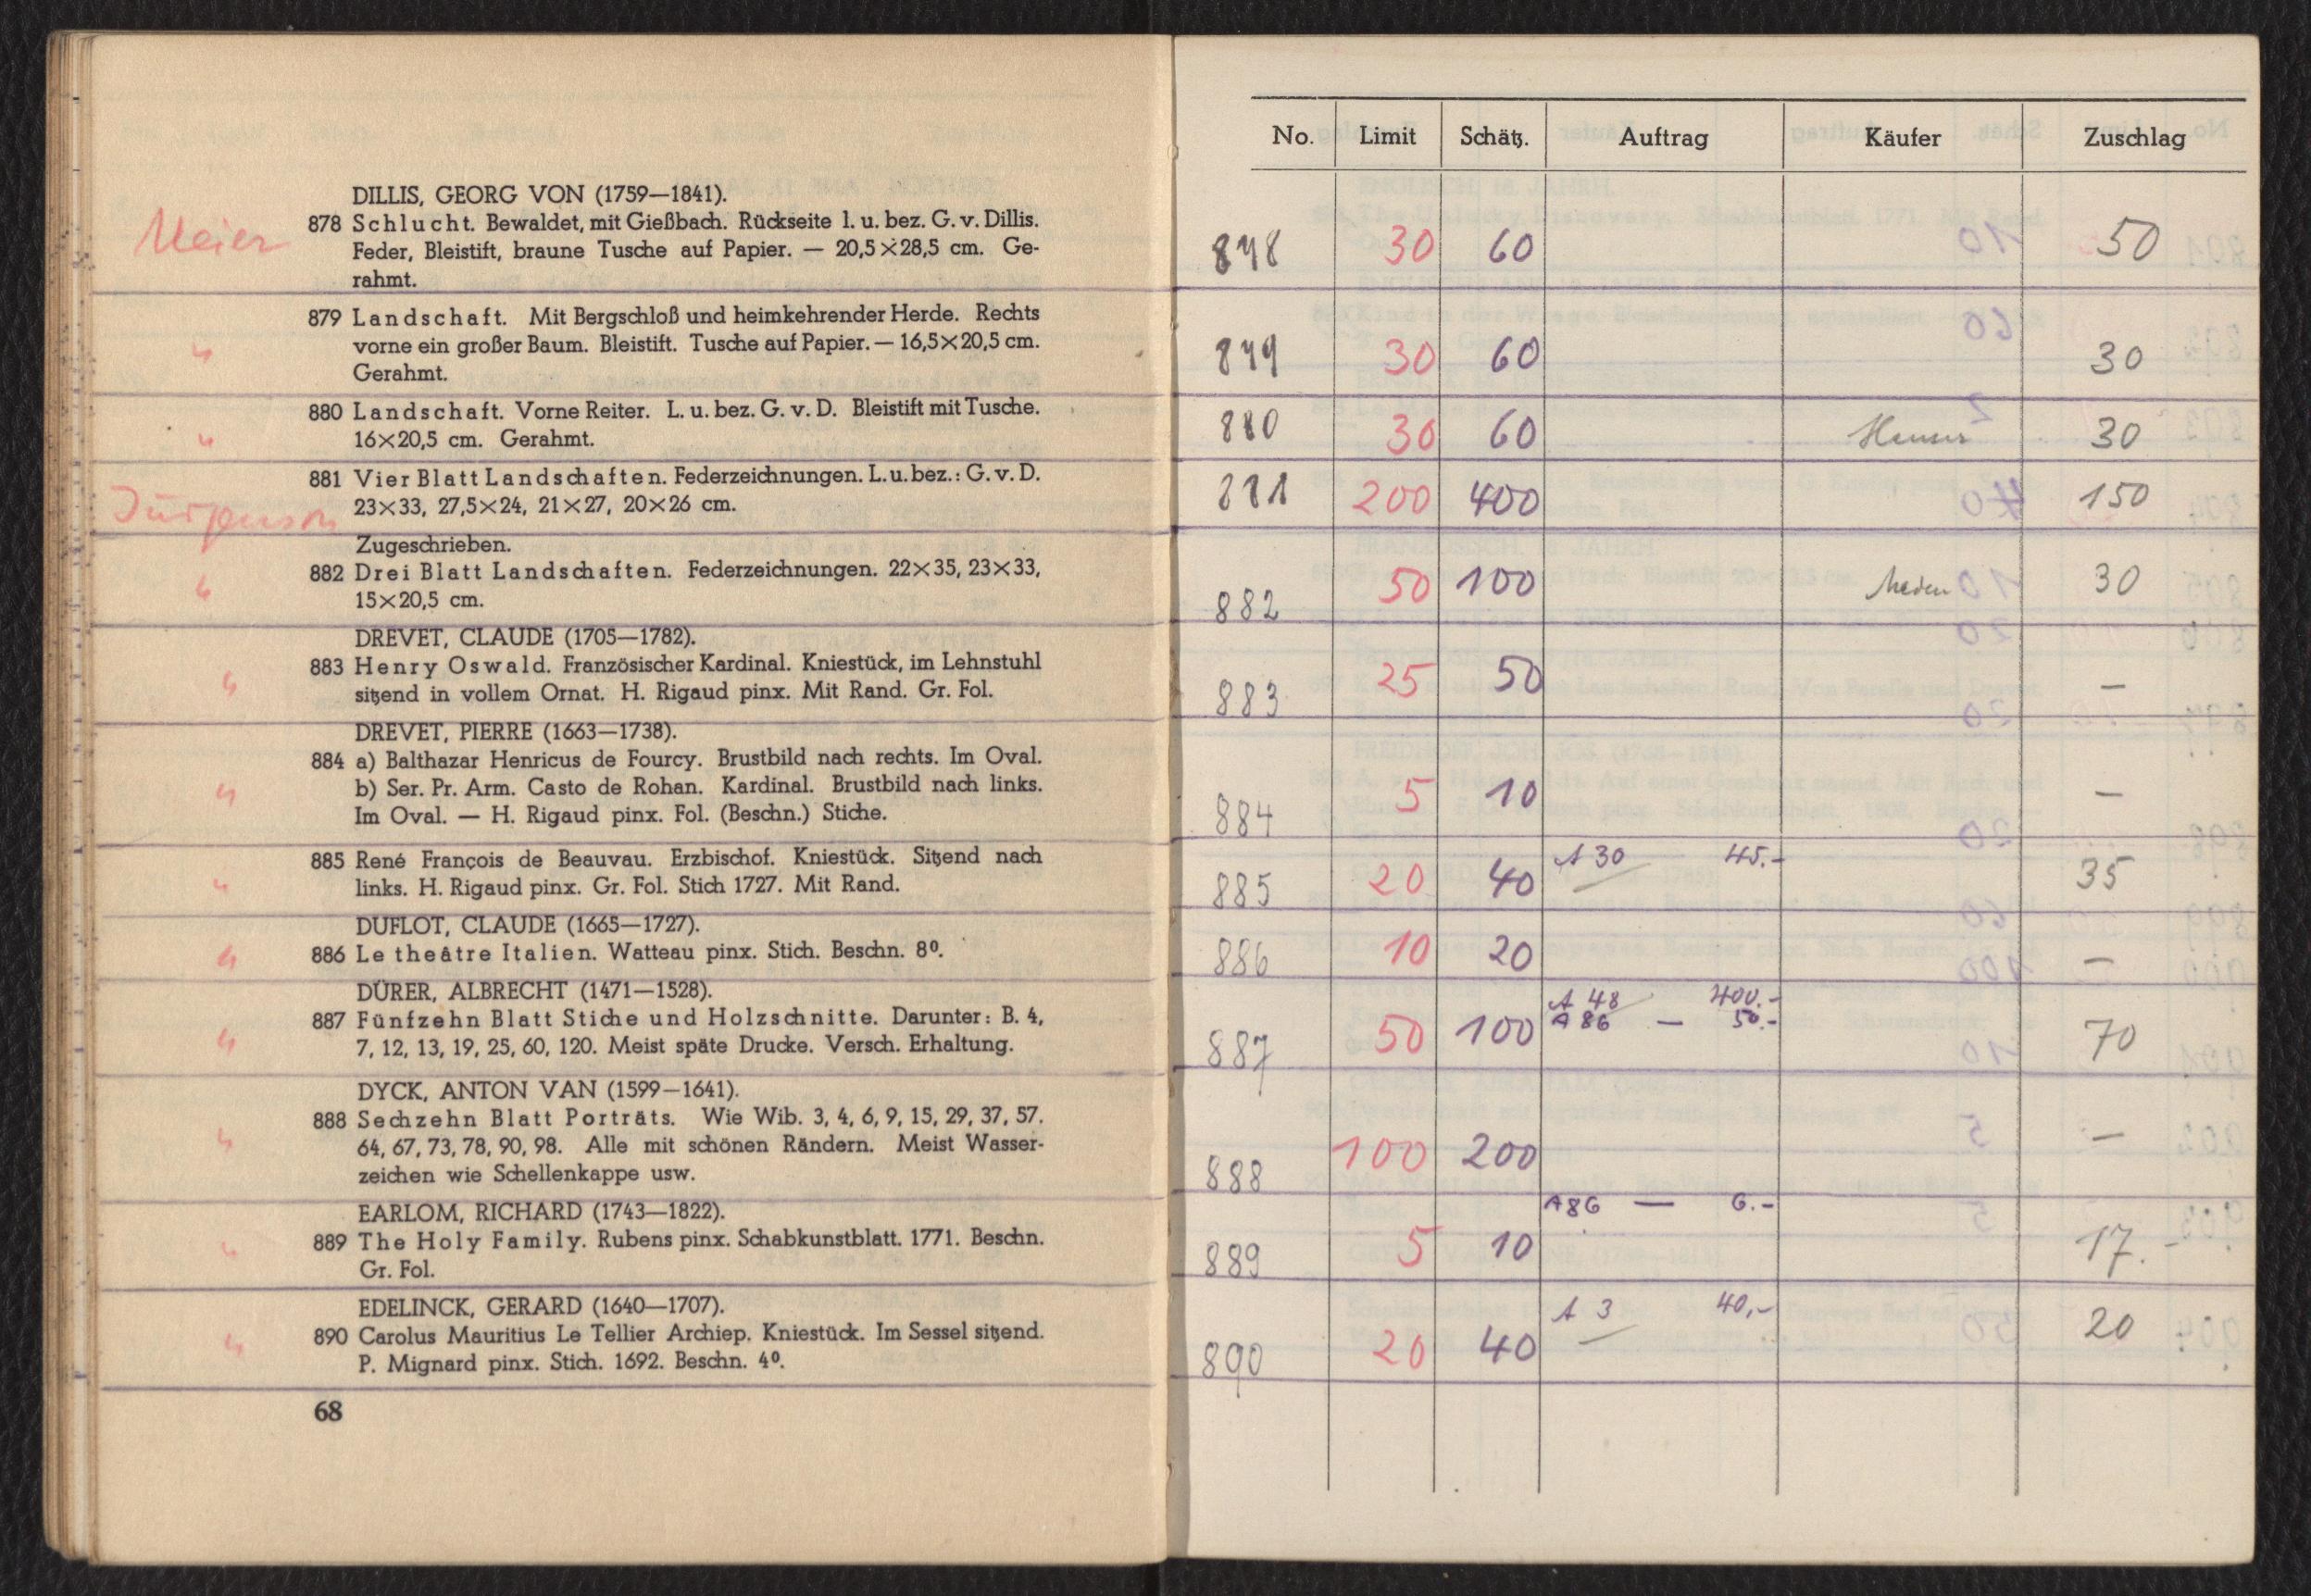 DILLIS, GEORG VON (1759—1841).
Meier
878 Schlucht. Bewaldet, mit Gießbach. Rückseite l. u. bez. G. v. Dillis.
Feder, Bleistift, braune Tusche auf Papier. — 20,5×28,5 cm. Ge-
rahmt.
879 Landschaft. Mit Bergschloß und heimkehrender Herde. Rechts
vorne ein großer Baum. Bleistift. Tusche auf Papier. — 16,5×20,5 cm.
"
Gerahmt.
880 Landschaft. Vorne Reiter. L. u. bez. G. v. D. Bleistift mit Tusche.
" 16×20,5 cm. Gerahmt.
881 Vier Blatt Landschaften. Federzeichnungen. L. u. bez.: G. v. D.
23×33, 27,5×24, 21×27, 20×26 cm.
Zugeschrieben.
882 Drei Blatt Landschaften. Federzeichnungen. 22×35, 23×33,
" 15×20,5 cm.
DREVET, CLAUDE (1705—1782).
883 Henry Oswald. Französischer Kardinal. Kniestück, im Lehnstuhl
" sitzend in vollem Ornat. H. Rigaud pinx. Mit Rand. Gr. Fol.
DREVET, PIERRE (1663—1738).
884 a) Balthazar Henricus de Fourcy. Brustbild nach rechts. Im Oval.
" b) Ser. Pr. Arm. Casto de Rohan. Kardinal. Brustbild nach links.
Im Oval. — H. Rigaud pinx. Fol. (Beschn.) Stiche.
885 René François de Beauvau. Erzbischof. Kniestück. Sitzend nach
" links. H. Rigaud pinx. Gr. Fol. Stich 1727. Mit Rand.
DUFLOT, CLAUDE (1665—1727).
" 886 Le theâtre Italien. Watteau pinx. Stich. Beschn. 8⁰.
DÜRER, ALBRECHT (1471—1528).
887 Fünfzehn Blatt Stiche und Holzschnitte. Darunter: B. 4,
" 7, 12, 13, 19, 25, 60, 120. Meist späte Drucke. Versch. Erhaltung.
DYCK, ANTON VAN (1599—1641).
888 Sechzehn Blatt Porträts. Wie Wib. 3, 4, 6, 9, 15, 29, 37, 57.
" 64, 67, 73, 78, 90, 98. Alle mit schönen Rändern. Meist Wasser-
zeichen wie Schellenkappe usw.
EARLOM, RICHARD (1743—1822).
" 889 The Holy Family. Rubens pinx. Schabkunstblatt. 1771. Beschn.
Gr. Fol.
EDELINCK, GERARD (1640—1707).
" 890 Carolus Mauritius Le Tellier Archiep. Kniestück. Im Sessel sitzend.
P. Mignard pinx. Stich. 1692. Beschn. 4⁰.
68
No. Limit Schätz. Auftrag Käufer Zuschlag
878 30 60 50
879 30 60 30
880 30 60 30
881 200 400 150
882 50 100 30
883 25 50 —
884 5 10 —
885 20 40 A 30 45.- 35
886 10 20 —
A 48 400.-
887 50 100 A 86 — 50.- 70
888 100 200 —
A 86 — 6.-
889 5 10 17.-
A 3 40,-
890 20 40 20